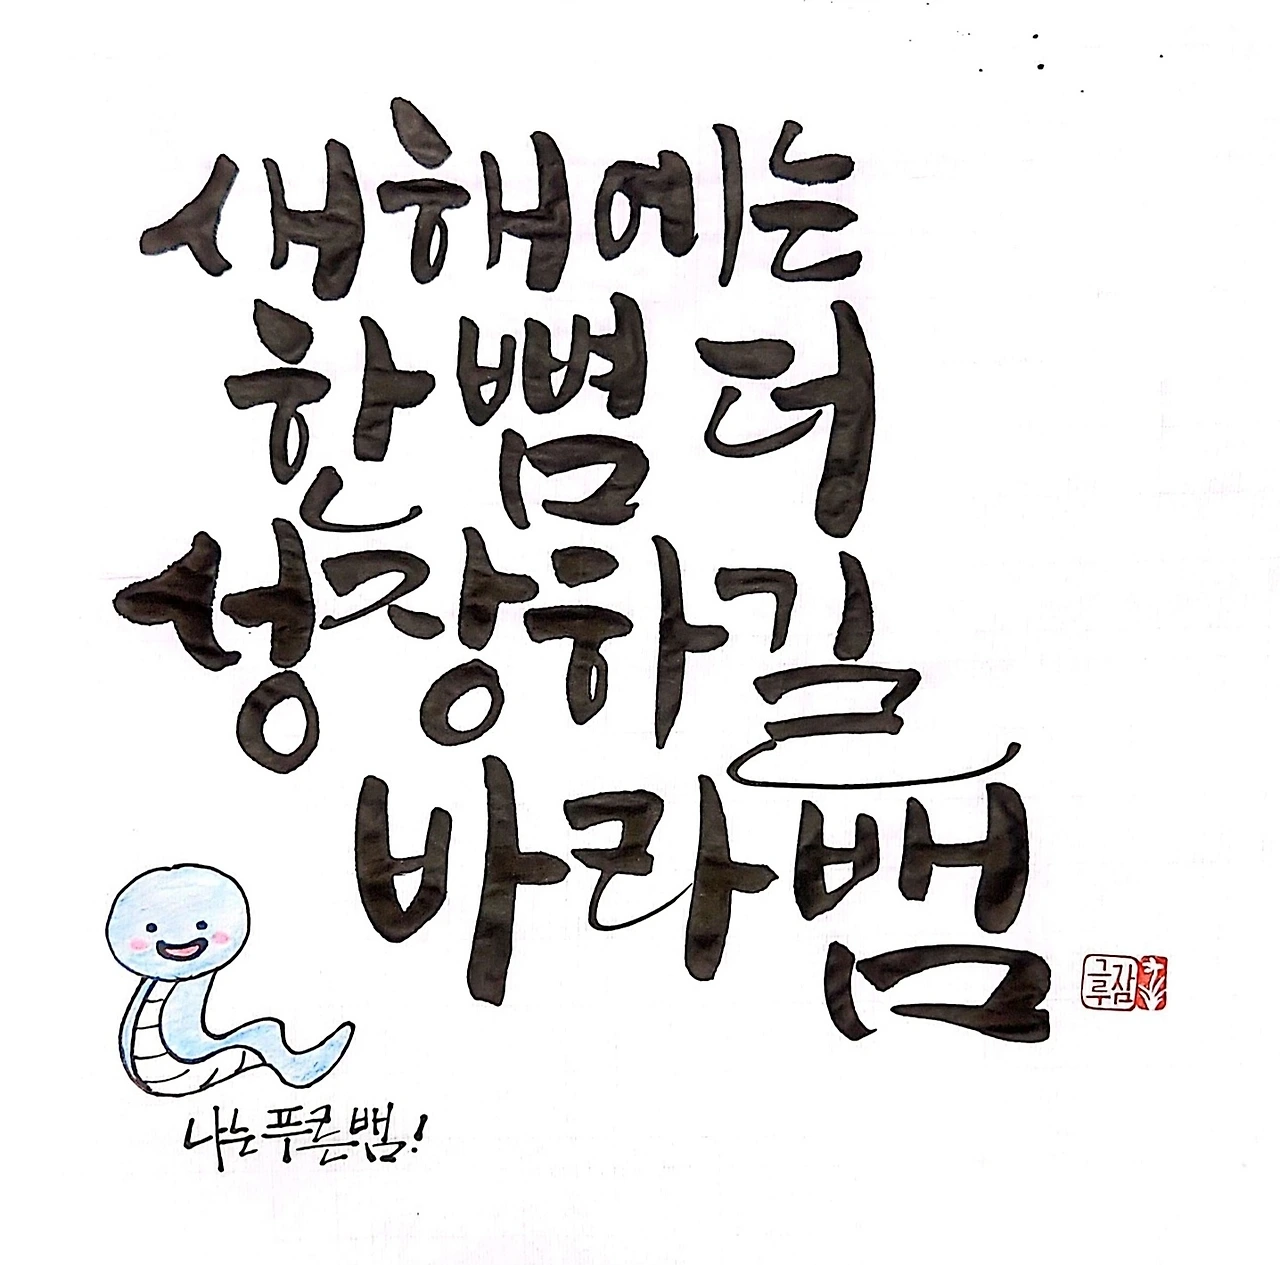 새해에는
한 뼘 더
성장하길
바라뱀
나는 푸른 뱀!
그루잠